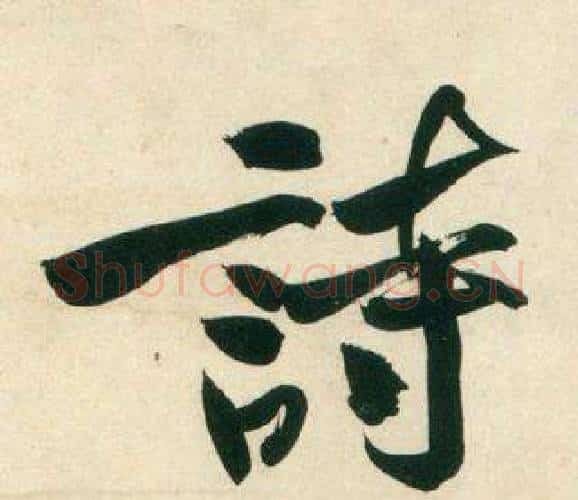 詩
Shufawang.CN